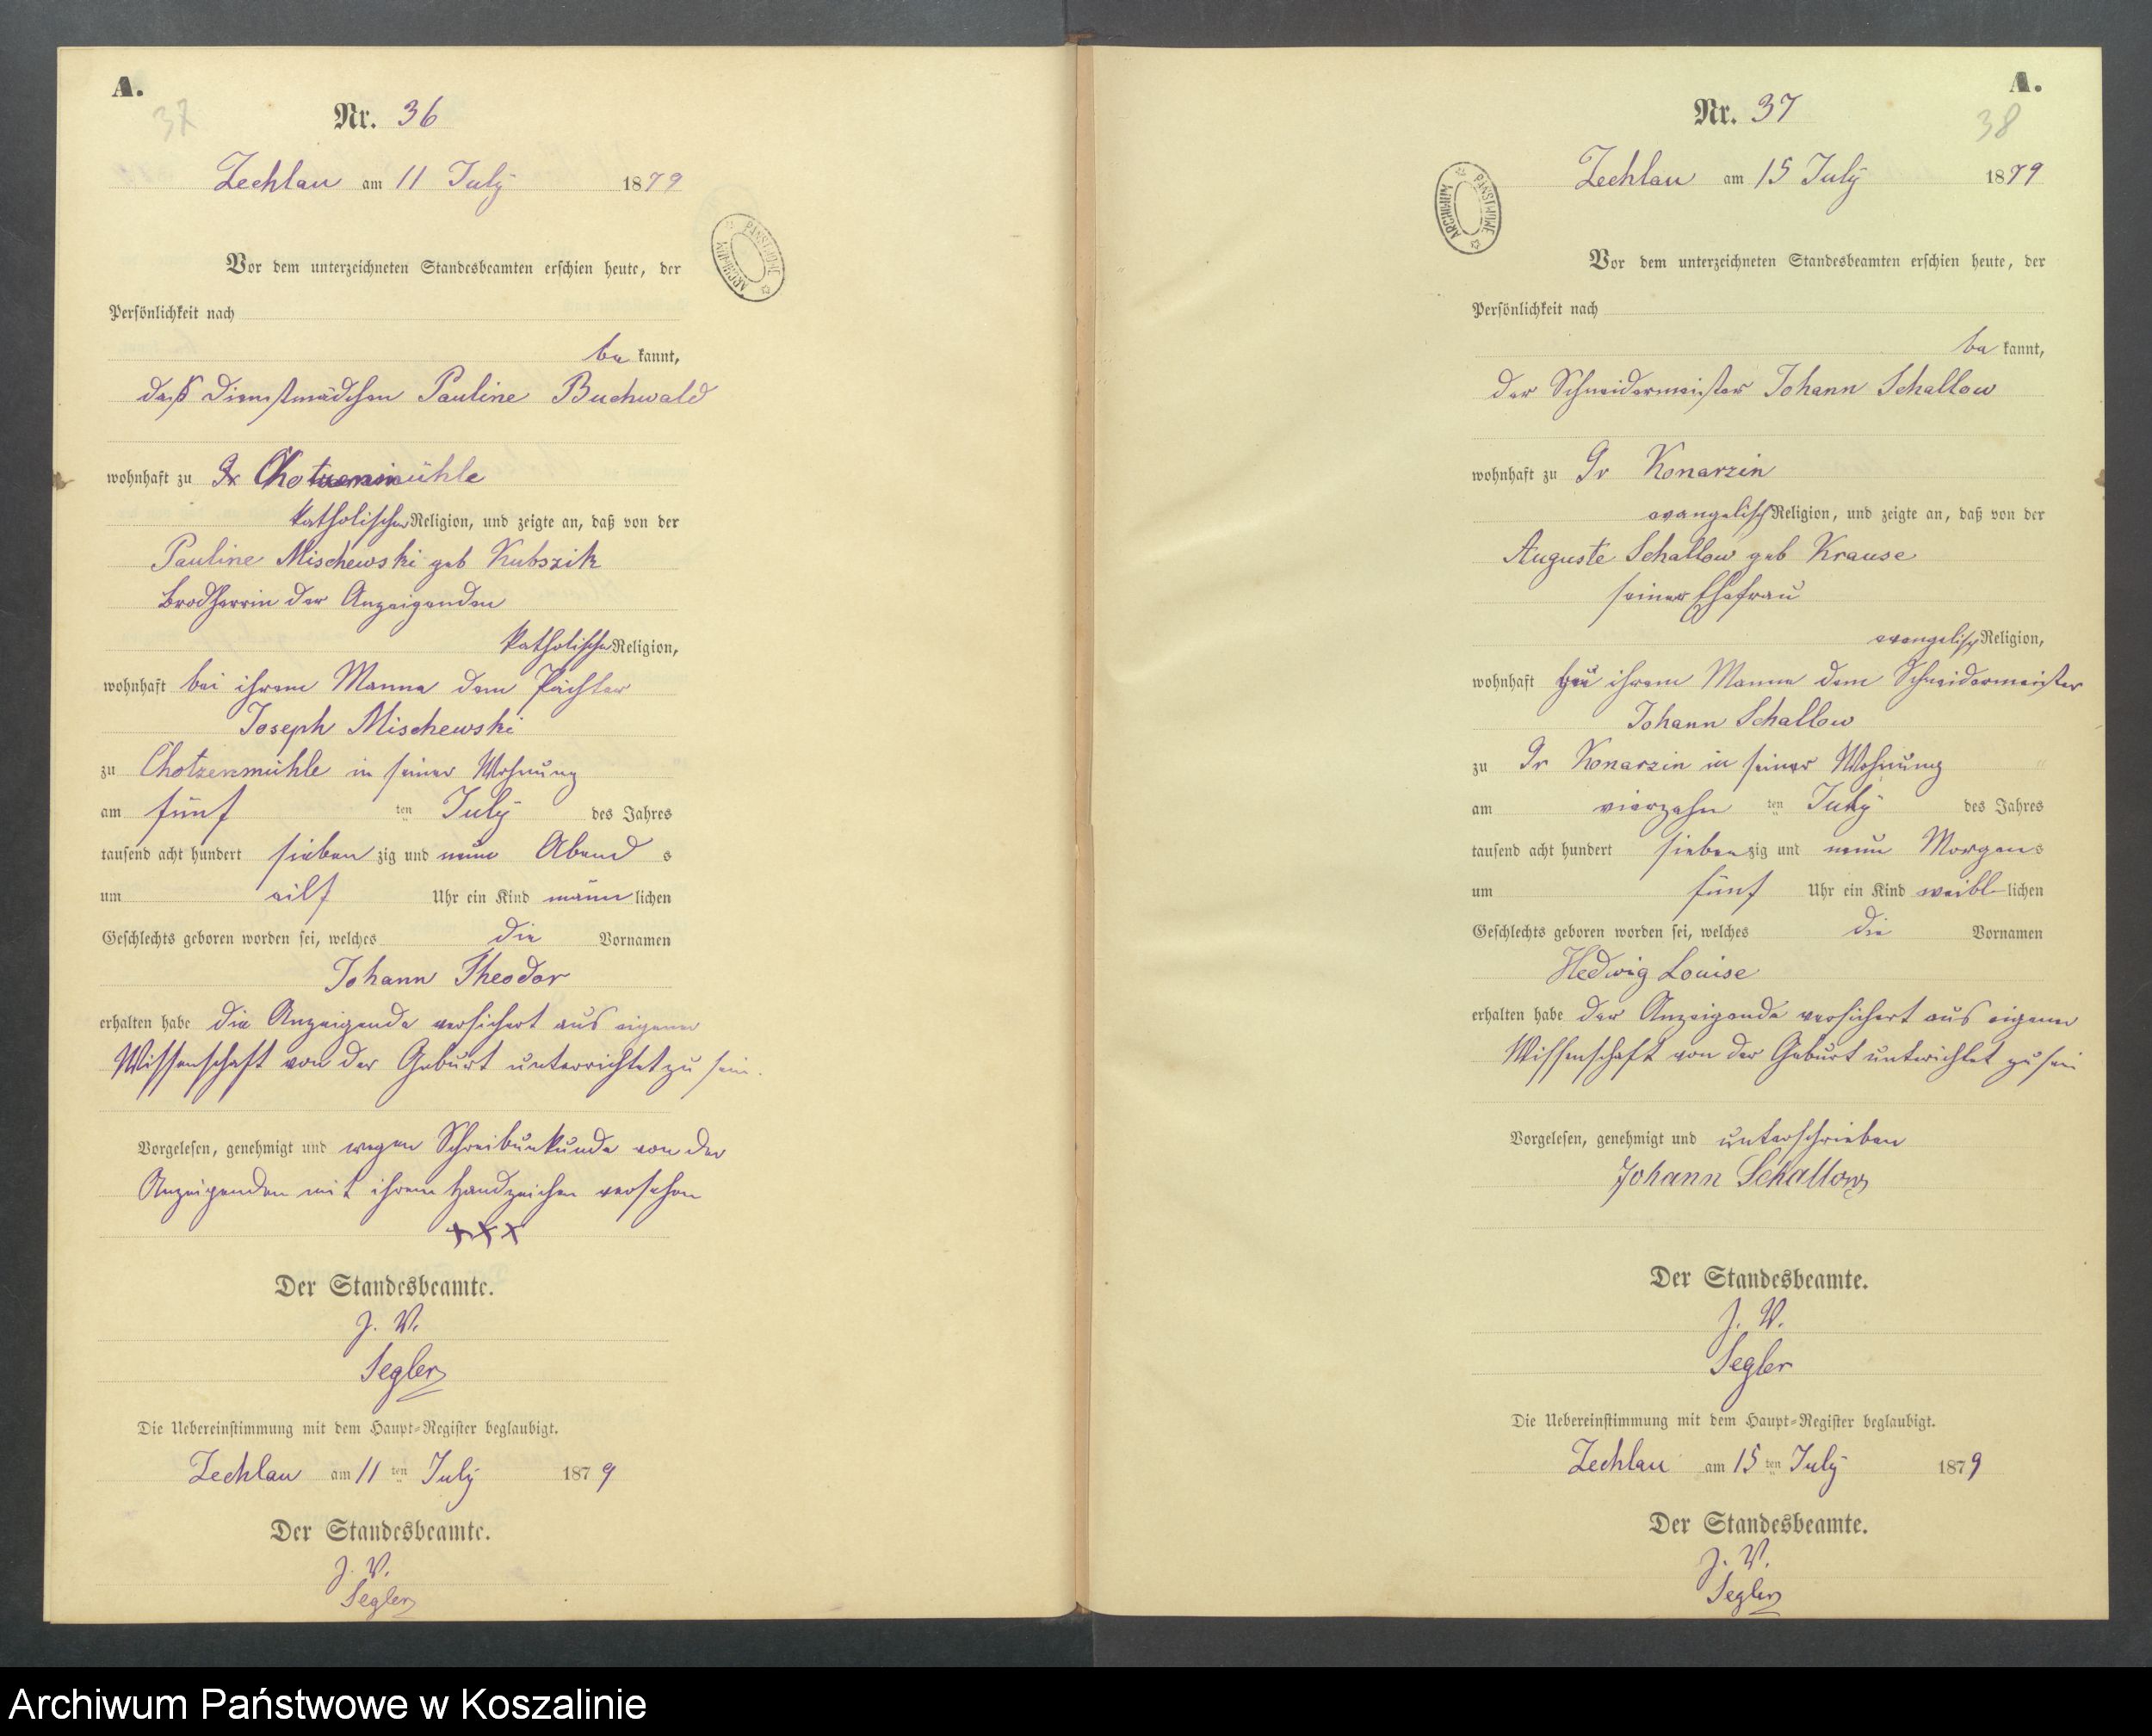 A.
37
Nr. 36
Zechlau am 11 July 1879
ARCHIWUM PAŃSTWOWE
Vor dem unterzeichneten Standesbeamten erschien heute, der
Persönlichkeit nach
be kannt,
das Dienstmädchen Pauline Buchwald
wohnhaft zu Chotzenmühle
katholischer Religion, und zeigte an, daß von der
Pauline Mischewski geb Kubszik
Brodherrin der Anzeigenden
katholischer Religion,
wohnhaft bei ihrem Manne dem Pächter
Joseph Mischewski
zu Chotzenmühle in seiner Wohnung
am fünf ten July des Jahres
tausend acht hundert sieben zig und neun Abend s
um eilf Uhr ein Kind männ lichen
Geschlechts geboren worden sei, welches die Vornamen
Johann Theodor
erhalten habe die Anzeigende versichert aus eigener
Wissenschaft von der Geburt unterrichtet zu sein.
Vorgelesen, genehmigt und wegen Schreibunkunde von der
Anzeigenden mit ihrem Handzeichen versehen
xxx
Der Standesbeamte.
J. V.
Segler
Die Uebereinstimmung mit dem Haupt-Register beglaubigt.
Zechlau am 11 ten July 1879
Der Standesbeamte.
J. V.
Segler
A.
38
Nr. 37
Zechlau am 15 July 1879
ARCHIWUM PAŃSTWOWE
Vor dem unterzeichneten Standesbeamten erschien heute, der
Persönlichkeit nach
be kannt,
der Schneidermeister Johann Schallow
wohnhaft zu Gr Konarzin
evangelisch Religion, und zeigte an, daß von der
Auguste Schallow geb Krause
seiner Ehefrau
evangelisch Religion,
wohnhaft bei ihrem Manne dem Schneidermeister
Johann Schallow
zu Gr Konarzin in seiner Wohnung
am vierzehn ten July des Jahres
tausend acht hundert sieben zig und neun Morgens
um fünf Uhr ein Kind weibl lichen
Geschlechts geboren worden sei, welches die Vornamen
Hedwig Louise
erhalten habe der Anzeigende versichert aus eigener
Wissenschaft von der Geburt unterichtet zu sein
Vorgelesen, genehmigt und unterschrieben
Johann Schallow
Der Standesbeamte.
J. V.
Segler
Die Uebereinstimmung mit dem Haupt-Register beglaubigt.
Zechlau am 15 ten July 1879
Der Standesbeamte.
J. V.
Segler
Archiwum Państwowe w Koszalinie